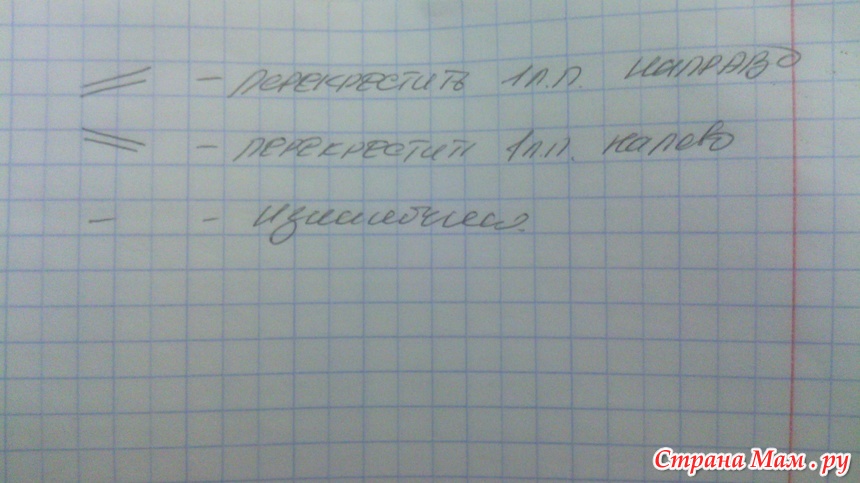 — перекрестить 1 л.п. направо
— перекрестить 1 л.п. налево
— - изнаночная.
Страна Мам.ру